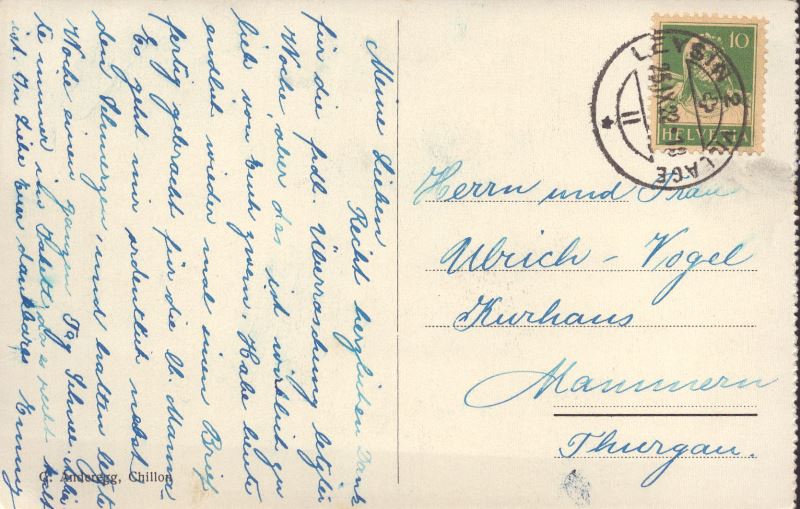 Meine Lieben
Recht herzlichen Dank
für die frdl. Überraschung letzte
Woche, aber das ist wirklich zu
lieb von Euch gwesen. Habe heute
endlich wieder mal einen Brief
fertig gebracht für die lb. Mamma
Es geht mir ordentlich nebst
den Schmerzen, und hatten letzte
Woche einen ganzen Tag Schnee.
immer im es recht kalt
ist. In Liebe Eure dankbare Emmy
G. Anderegg, Chillon
LEYSIN 2 VILLAGE
10
HELVETIA
II
Herrn und Frau
Ulrich-Vogel
Kurhaus
Mammern
Thurgau.